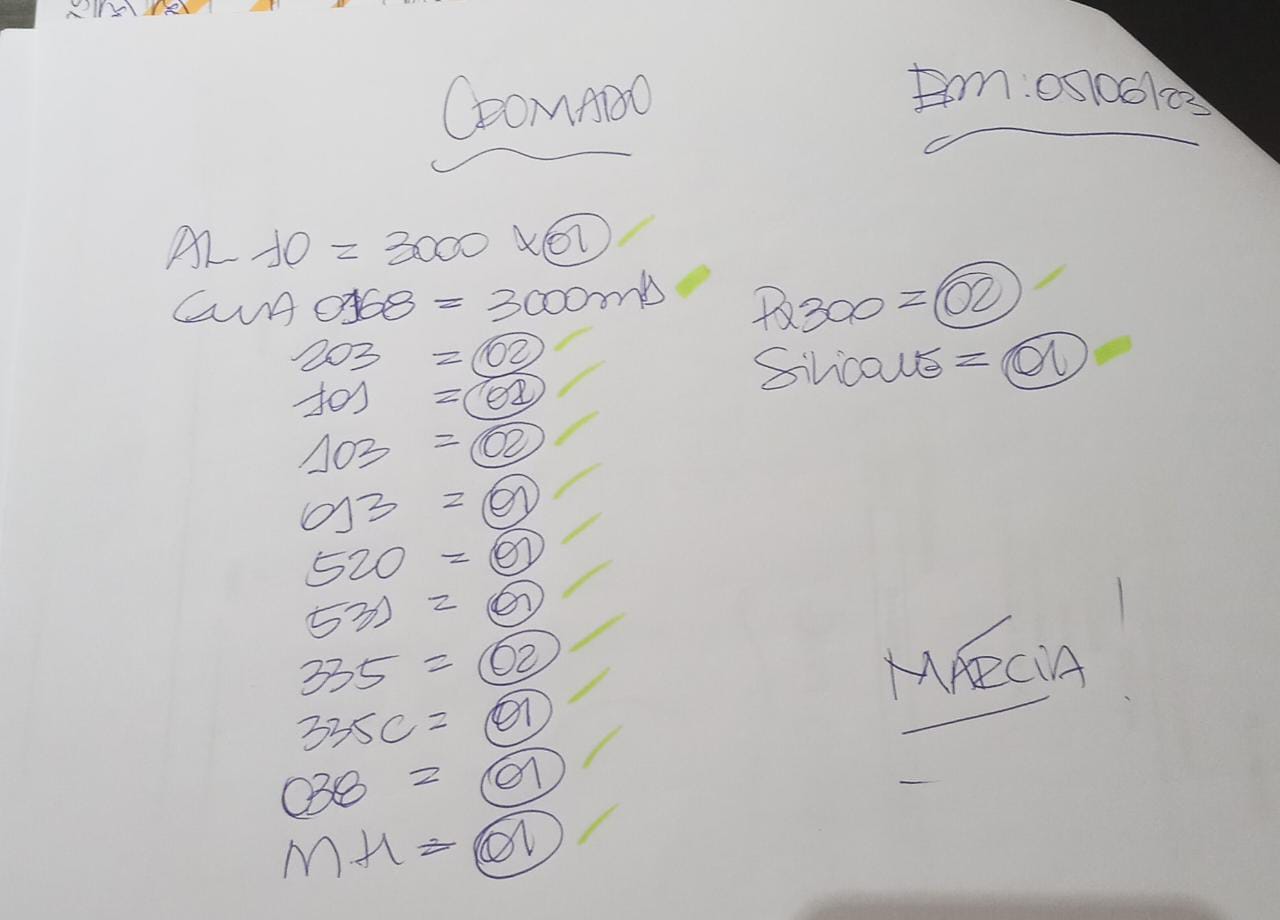 CROMADO
EM: 05/06/23
AL 10 = 3000 x 01
GUIA 0168 = 3000mts
203 = 02
101 = 02
103 = 02
013 = 01
520 = 01
531 = 01
335 = 02
335C = 01
038 = 01
MH = 01
PQ300 = 02
Silicone = 01
MÁRCIA!